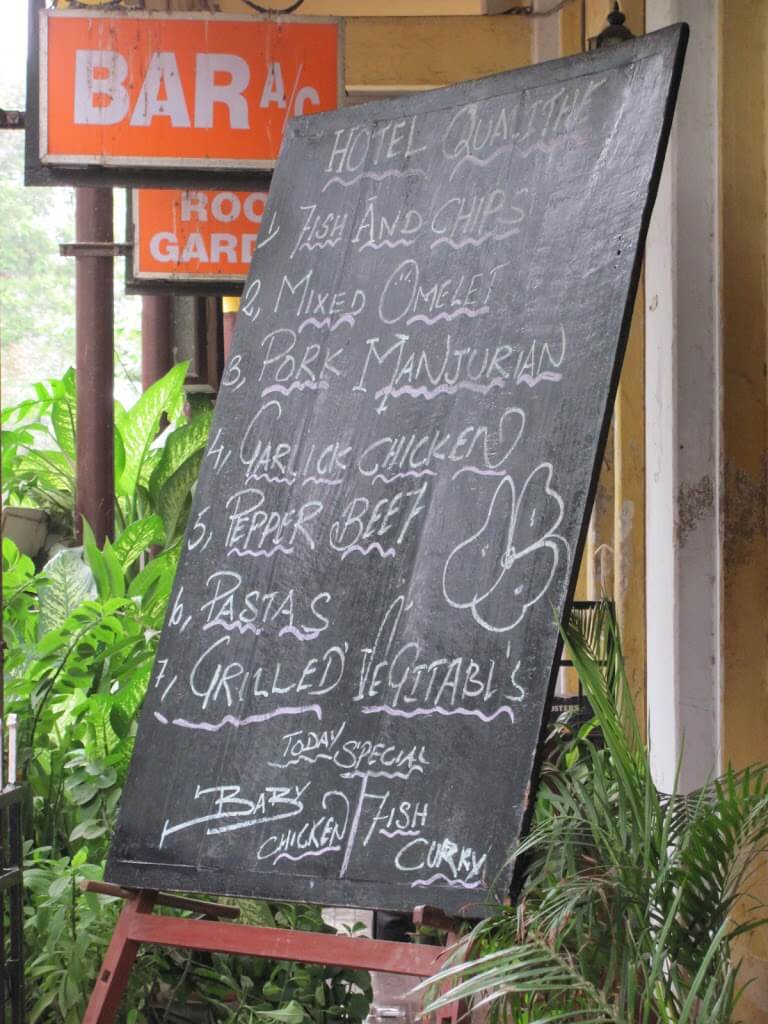 BAR A/C
ROO
GARD
HOTEL QUALITHE
1 FISH AND CHIPS
2, MIXED OMELET
3, PORK MANJURIAN
4, GARLICK CHICKEN
5, PEPPER BEEF
6, PASTAS
7, GRILLED VEGITABL'S
TODAY SPECIAL
BABY CHICKEN
FISH CURRY